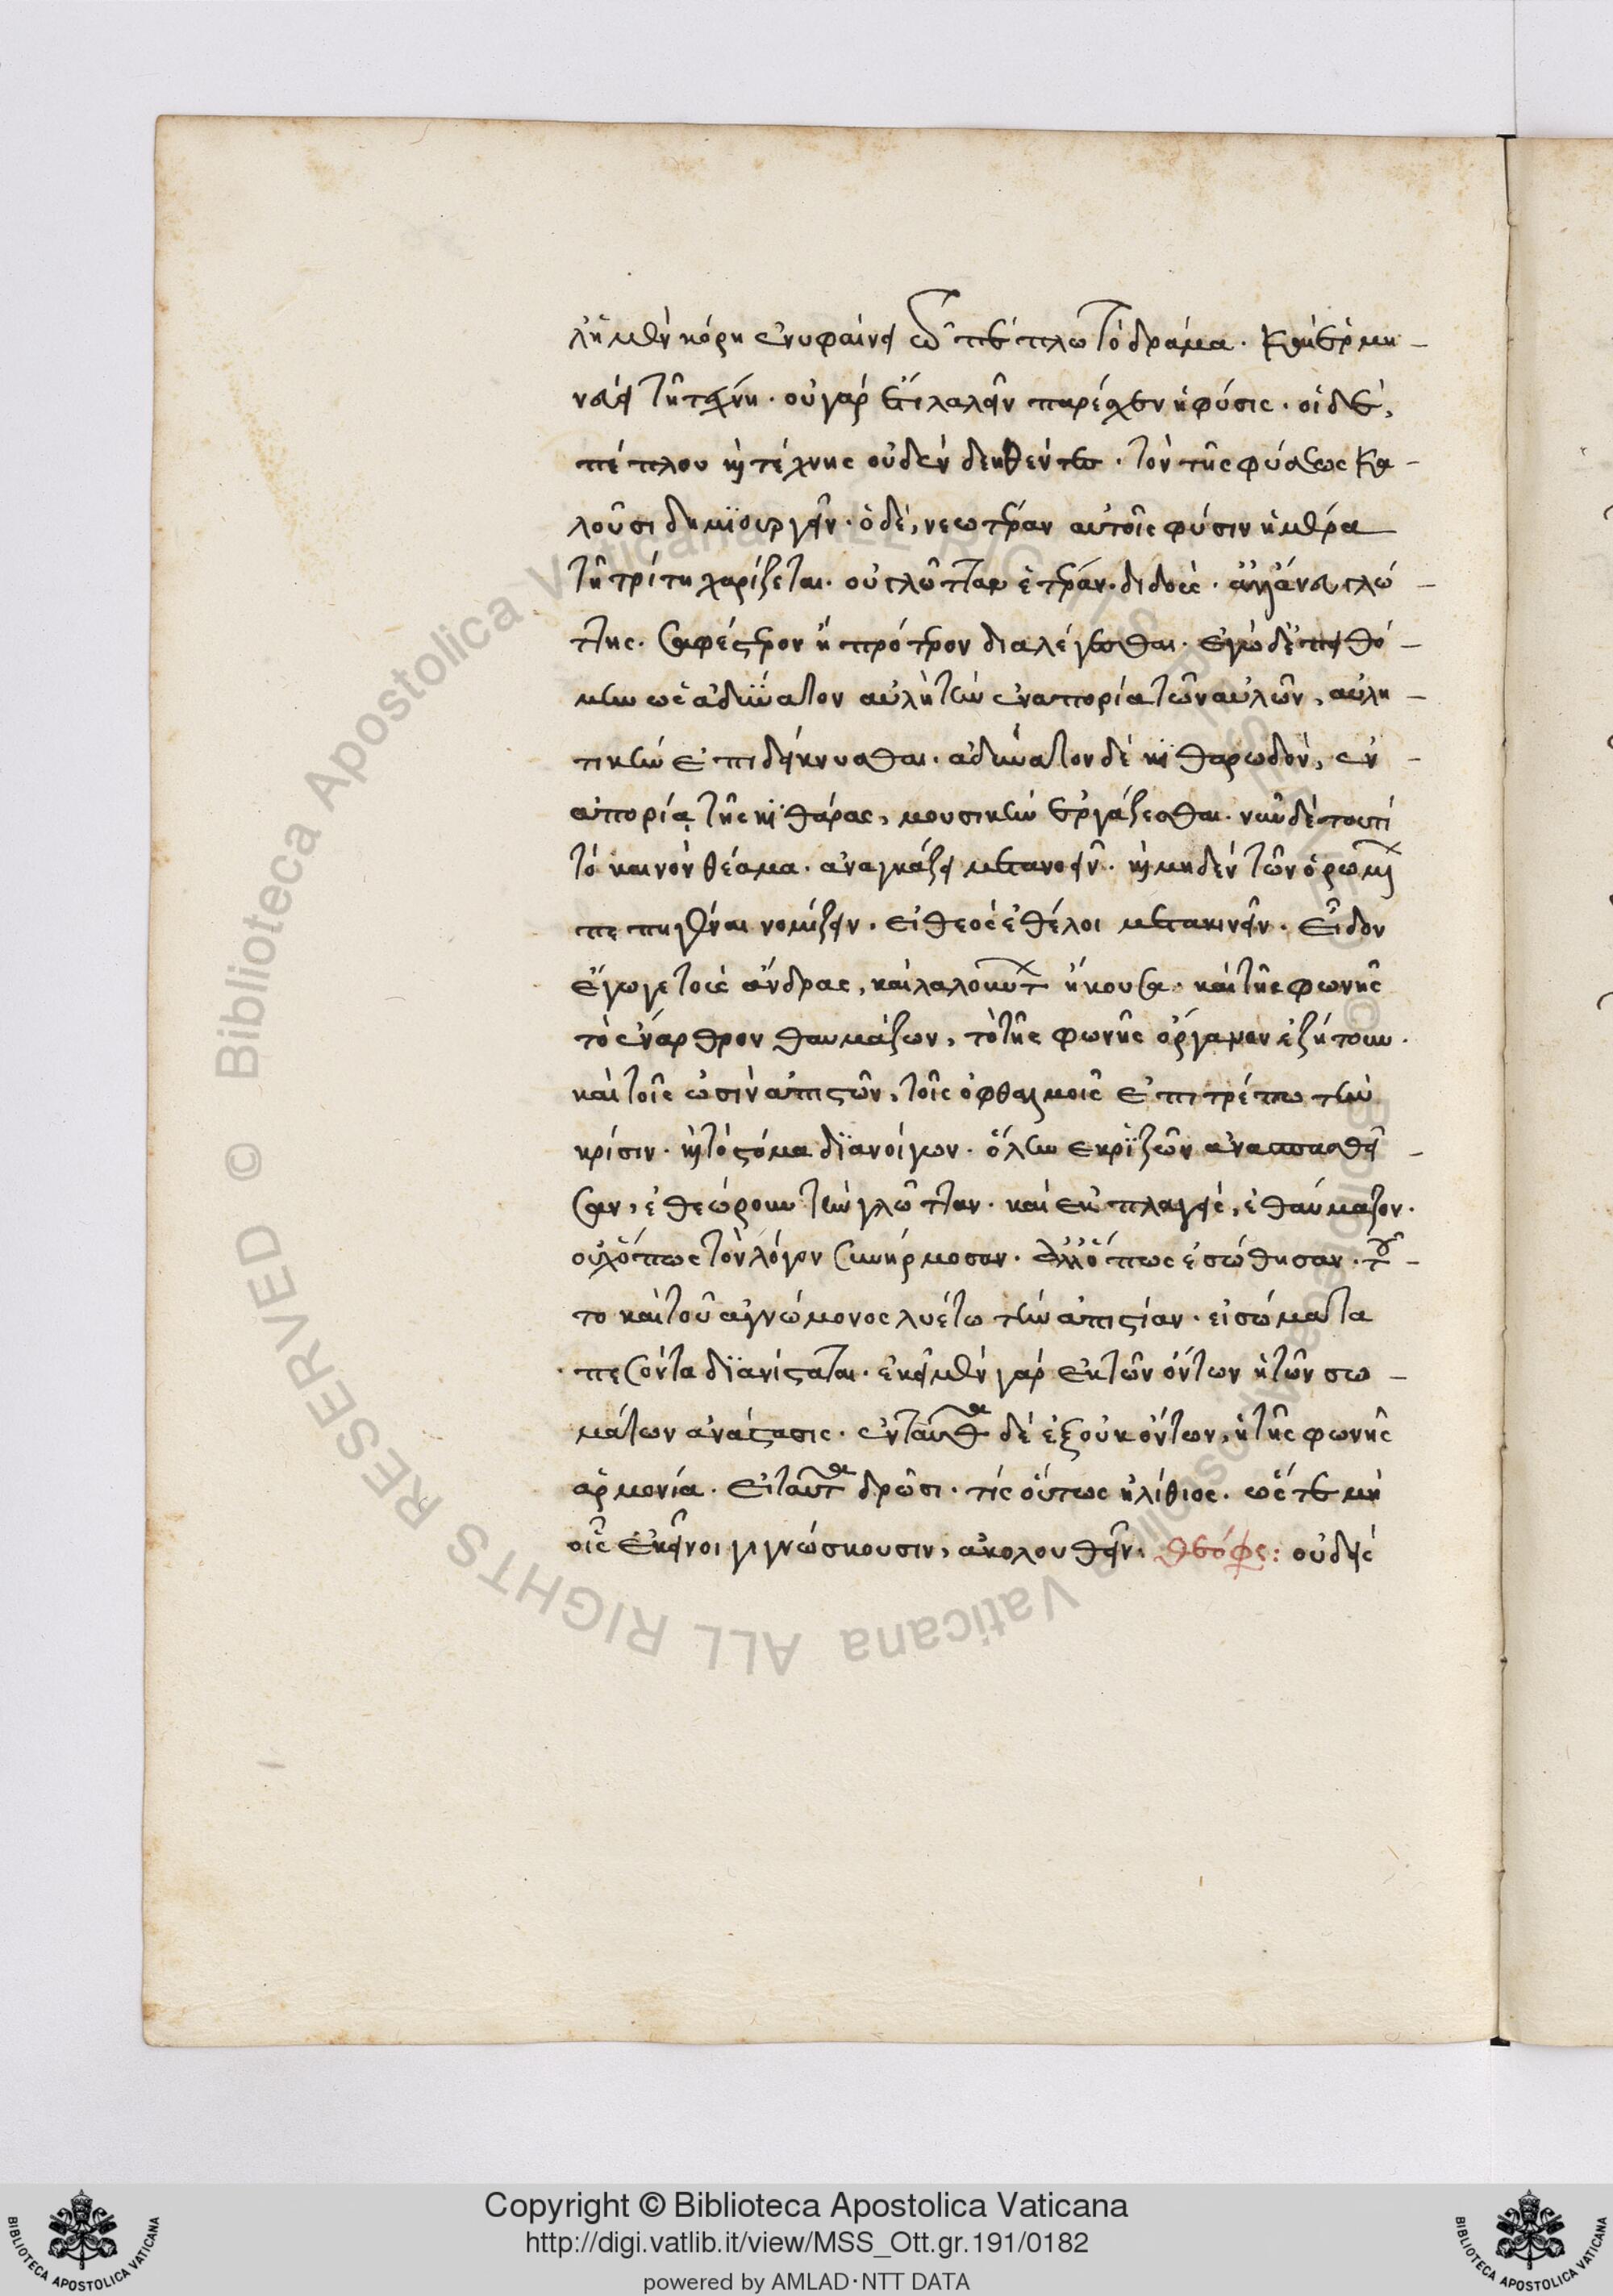 λὴ μὲν κόρη ἐνυφαίνει τῶ πέπλω τὸ δράμα. καὶ ἑρμη-
νεύει τῆ τέχνη. οὐ γὰρ ἔτι λαλεῖν παρέχεν ἡ φύσις. οἱ δὲ,
πέπλου καὶ τέχνης οὐδὲν δεηθέντες. τὸν τῆς φύσεως κα-
λοῦσι δημϊουργόν. ὁ δὲ, νεωτέραν αὐτοῖς φύσιν ἡμέρα
τῆ τρίτη χαρίζεται. οὐ γλῶτταν ἑτέραν διδοὺς. ἀλλ' ἄνευ γλώ-
ττης. σαφέστερον ἢ πρότερον διαλέγεσθαι. ἐγὼ δὲ ἐπειθό-
μην ὡς ἀδύνατον αὐλητὴν ἐν ἀπορία τῶν αὐλῶν, αὐλη-
τικὴν ἐπιδείκνυσθαι. ἀδύνατον δὲ κϊθαρωδὸν, ἐν
ἀπορία τῆς κϊθάρας, μουσικὴν ἐργάζεσθαι. νῦν δὲ τουτὶ
τὸ καινὸν θέαμα. ἀναγκάζει μετανοεῖν. καὶ μηδὲν τῶν ὁρωμένων
πεπηγέναι νομίζειν. εἰ θεὸς ἐθέλοι μετακινεῖν. εἶδον
ἔγωγε τοὺς ἄνδρας, καὶ λαλούντων ἤκουσα. καὶ τῆς φωνῆς
τὸ ἔναρθρον θαυμάζων, τὸ τῆς φωνῆς ὄργανον ἐζήτουν.
καὶ τοῖς ὠσὶν ἀπιστῶν, τοῖς ὀφθαλμοῖς ἐπιτρέπω τὴν
κρίσιν. καὶ τὸ στόμα δϊανοίγων. ὅλην ἐκ ρϊζῶν ἀνασπασθεῖ-
σαν, ἐθεώρουν τὴν γλῶτταν. καὶ ἐκπλαγεὶς, ἐθαύμαζον.
οὐχ ὅπως τὸν λόγον συνήρμοσαν. ἀλλ' ὅπως ἐσώθησαν. τοῦ-
το καὶ τοῦ ἀγνώμονος λυέτω τὴν ἀπιστίαν. εἰ σώματα
πεσόντα δϊανίσταται. ἐκεῖ μὲν γὰρ ἐκ τῶν ὄντων ἡ τῶν σω-
μάτων ἀνάστασις. ἐνταῦθα δὲ ἐξ οὐκ ὄντων, ἡ τῆς φωνῆς
ἁρμονία. εἰ ταῦτα δρῶσι. τίς οὕτως ἠλίθιος. ὥστε μὴ
οἷς ἐκεῖνοι γιγνώσκουσιν, ἀκολουθεῖν. θεόφρ: οὐδεὶς